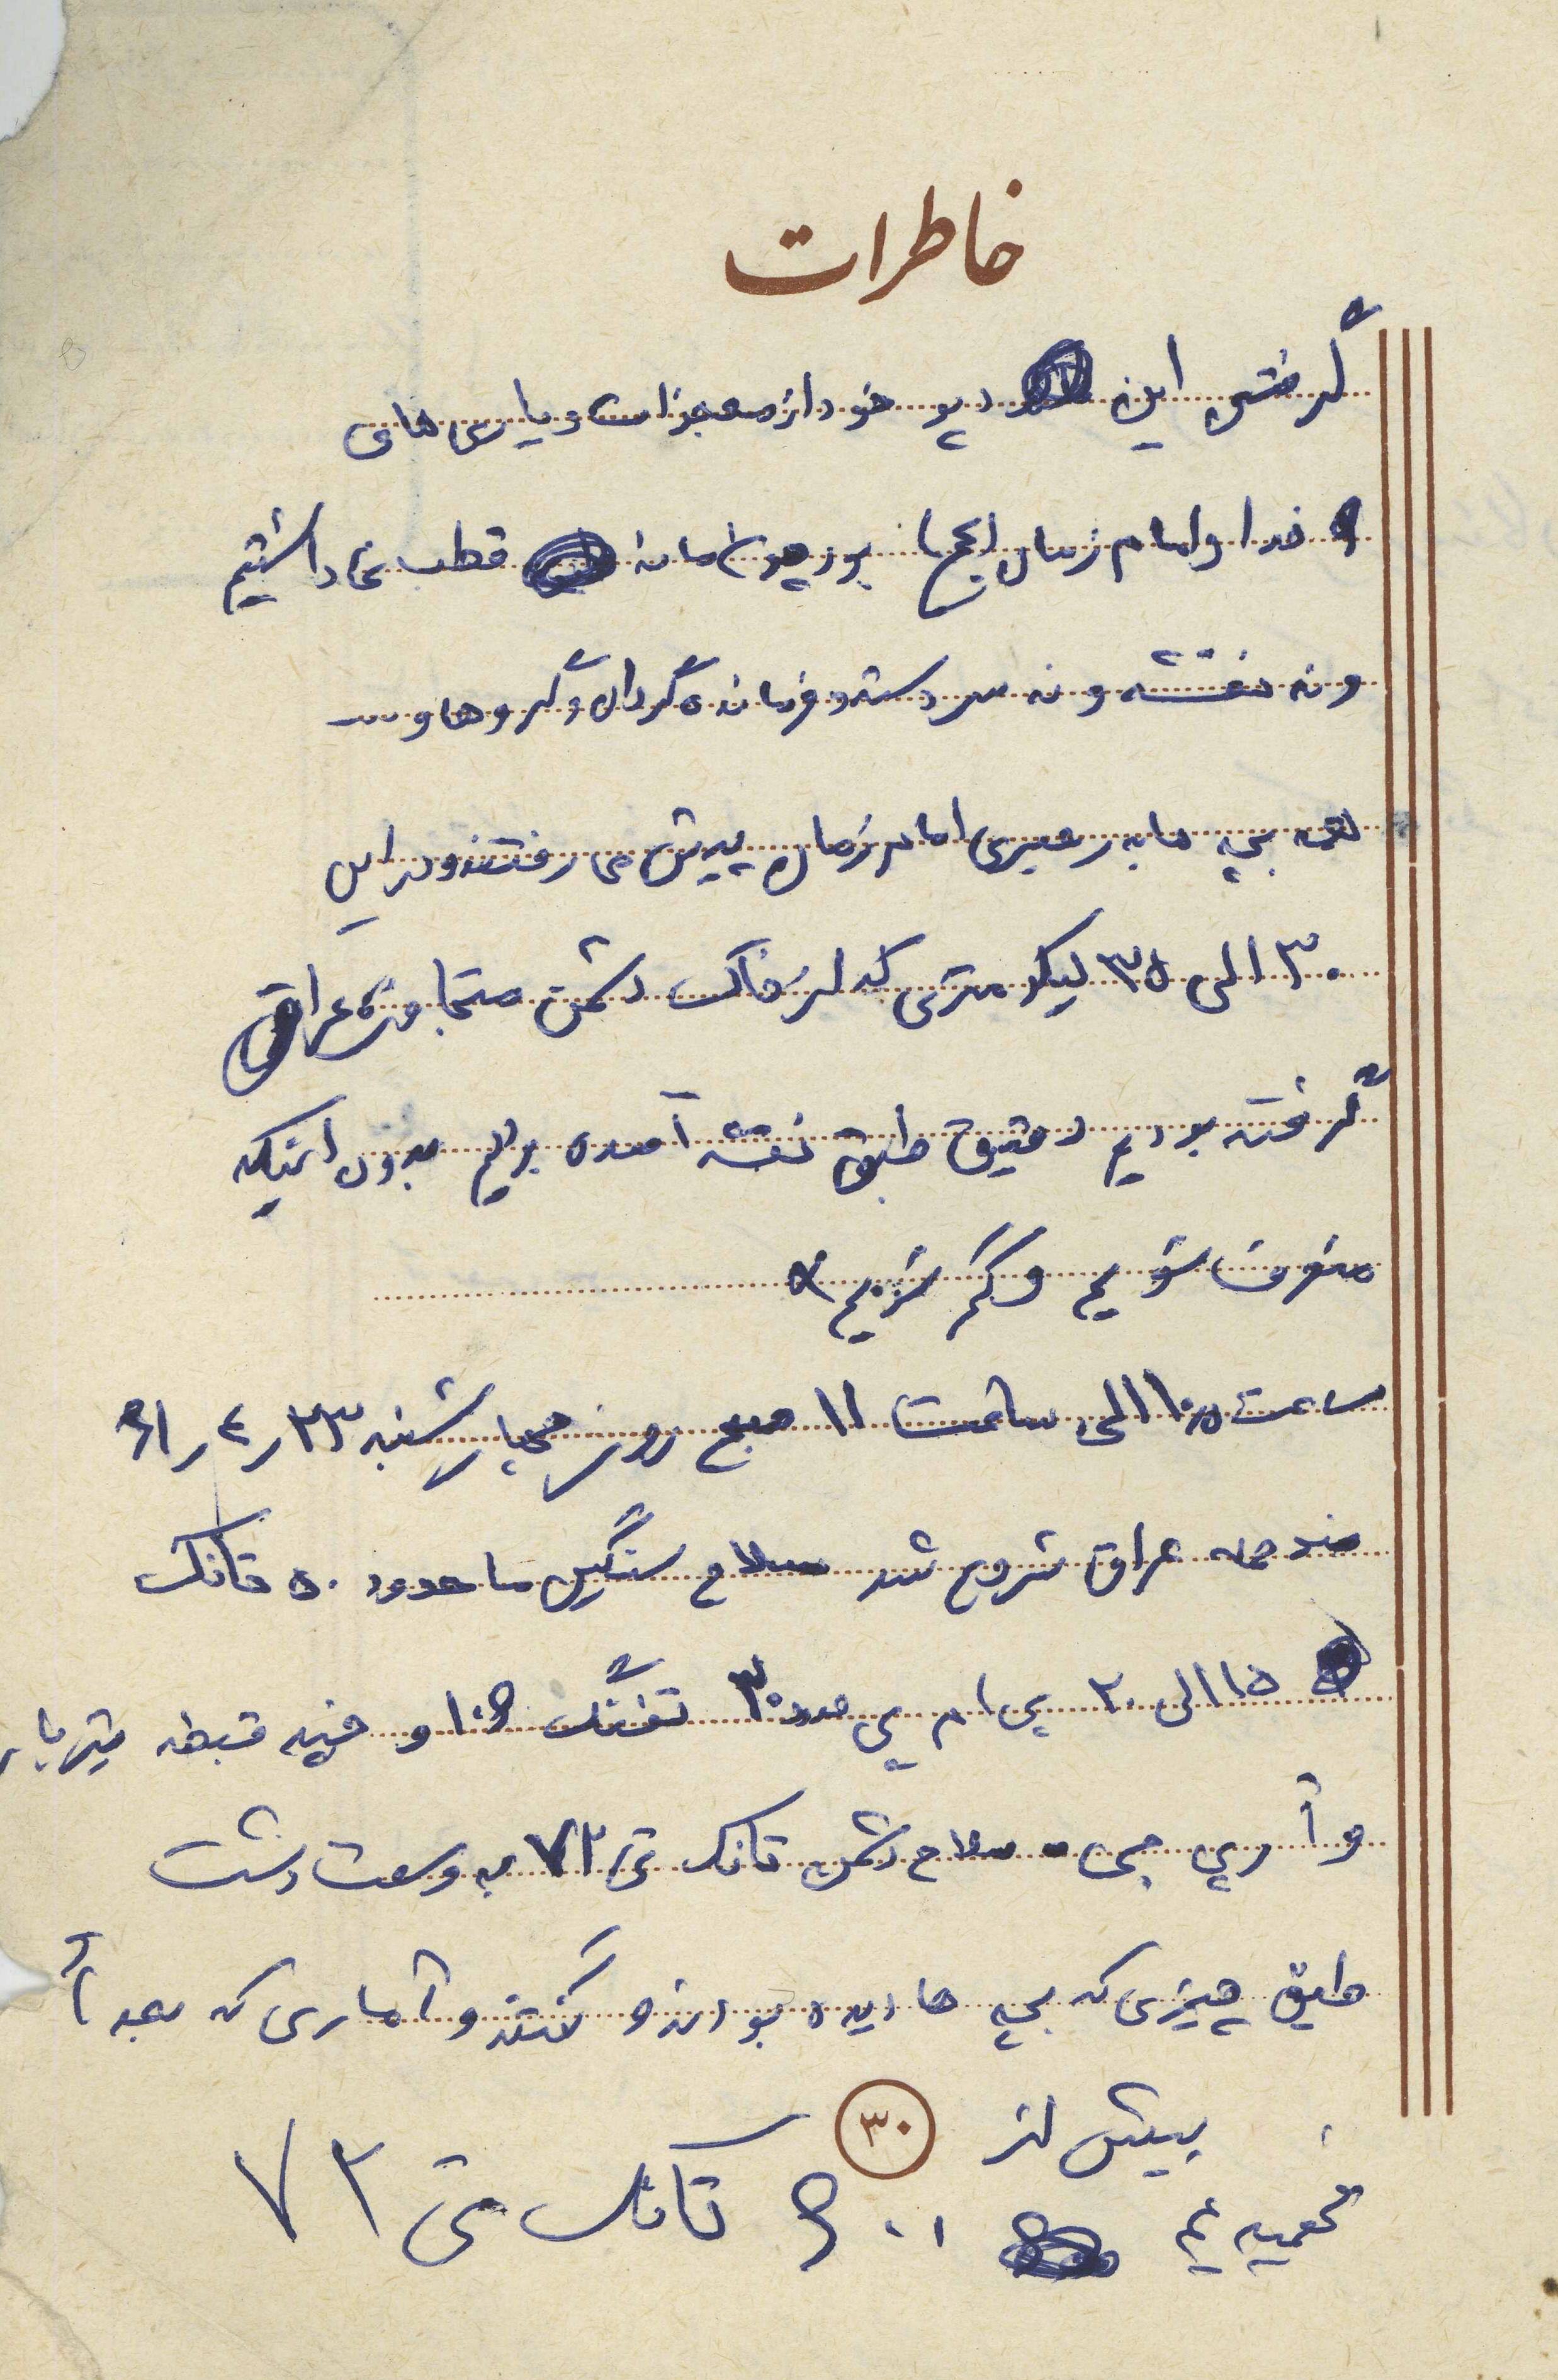 خاطرات
گرفتن این دپو خود از معجزات و یاری های
خدا و امام زمان (عج) بود چون ما نه قطب نما داشتیم
و نه نقشه و نه سر دسته و فرمانده گردان و گروهان و ...
همه بچه ها به رهبری امام زمان پیش می رفتند و در این
۳۰ الی ۳۵ کیلو متری که از خاک دشمن متجاوز عراق
گرفته بودیم دقیق طبق نقشه آمده بودیم بدون اینکه
منحرف شویم و گم شویم
ساعت ۱۰٫۵ الی ساعت ۱۱ صبح روز چهارشنبه ۲۳ ر ۴ ر ۶۱
ضد حمله عراق شروع شد سلاح سنگین ما حدود ۵۰ تانک
۱۵ الی ۲۰ پی ام پی حدود ۳۰ تفنگ ۱۰۶ و چند قبضه تیربار
و آر پی جی - سلاح دشمن تانک تی ۷۲ به وسعت دشت
طبق چیزی که بچه ها دیده بودند و گفتند و آماری که بعداً
بیش از
۳۰
فهمیدیم ۶۰۰ تانک تی ۷۲